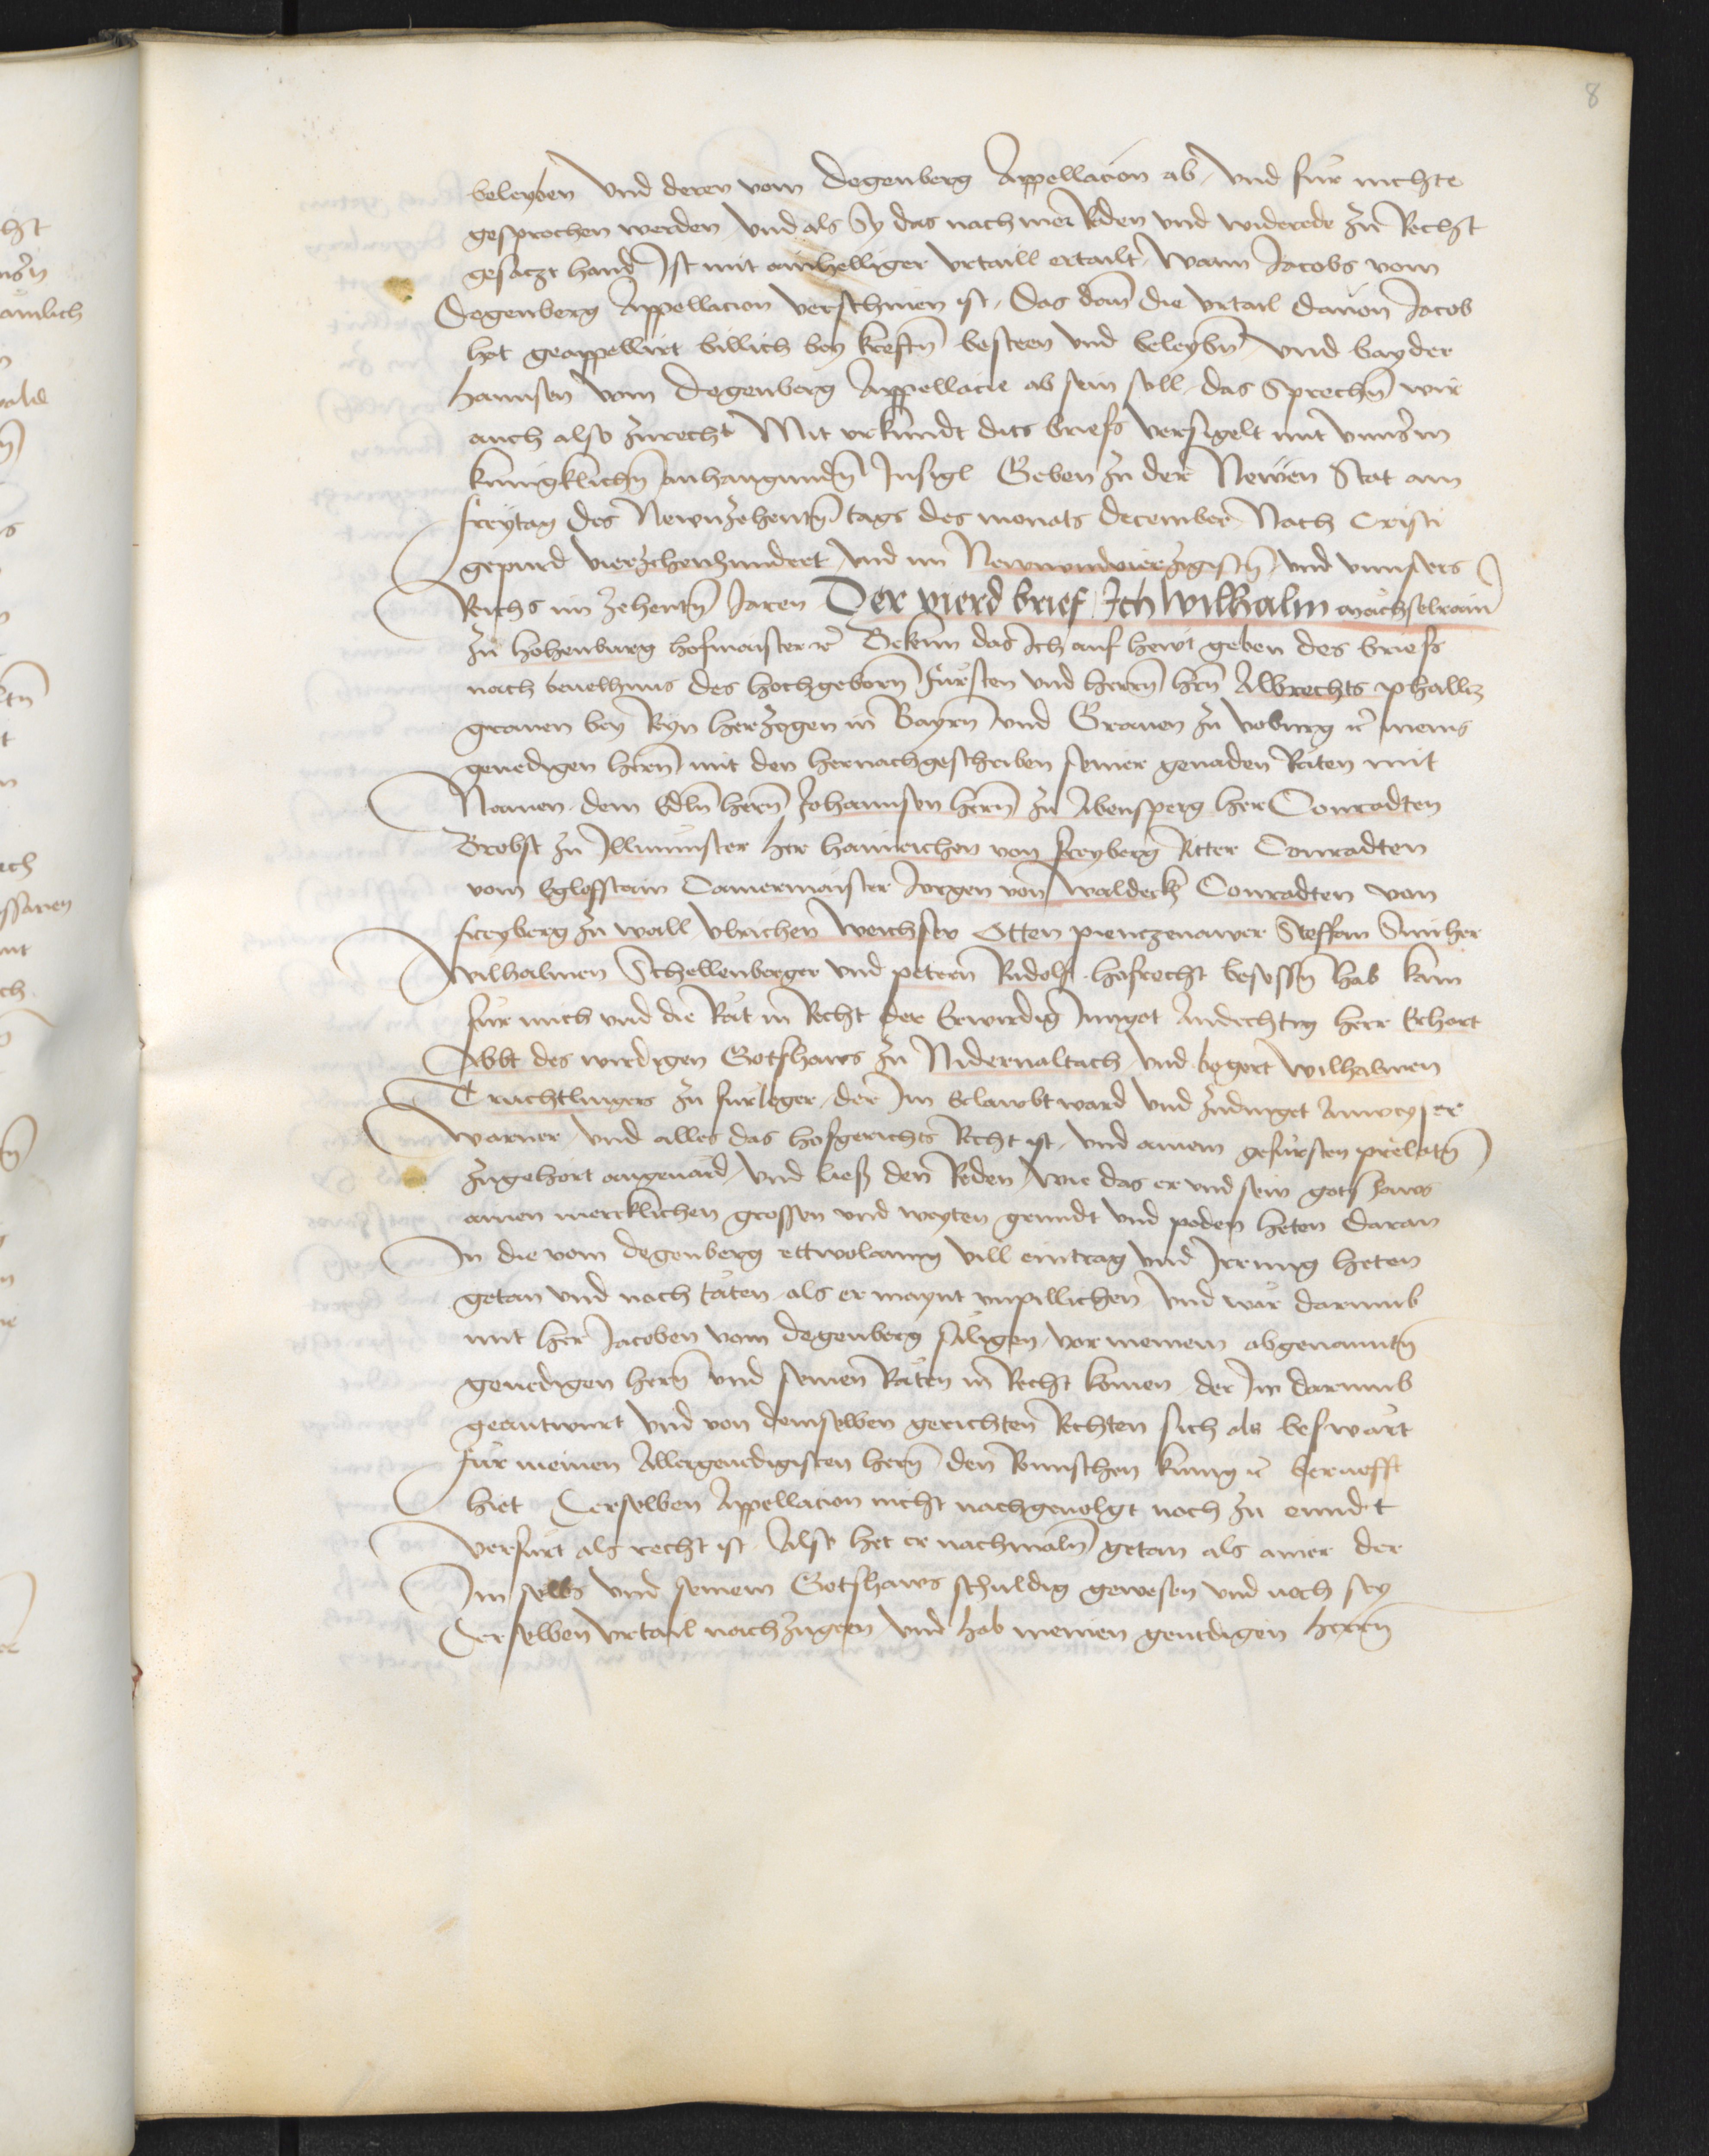 8
beleyben Vnd deren vom Degenberg Appellacion ab, vnd für nichte
gesprochen werden, Vnd als Sy das nach mer Reden vnd widerede zu Recht
gesaczt hand, Ist mit ainhelliger vrtaill ertailt, Wann Jacobs vom
Degenberg Appellacion verschinen ist, Das dann die vrtail dauon Jacob
hat geappellirt billich bey kreftn̄ besteen vnd beleybn̄ vnd bayder
hannsen vom Degenberg Appellacie ab sein soll, das Sprechn̄ wir
auch also zurecht Mit vrkundt dits briefs versigelt mit vnnserm
kunigklichn̄ anhangundn̄ Insigl Geben zu der Newen Stat am
freytag des Newnzehentn̄ tags des monats December Nach Cristi
gepurd vierzehenhundert vnd im Newnundvierzigistn̄ vnd vnnsers
Reichs im zehentn̄ Jaren Der vierd brief, Ich Wilhalm mächselrain
zu hohenburg hofmaister ꝛc Bekenn das Ich auf hewt geben des briefs
nach beuelhnus des hochgeborn̄ Fürsten vnd herrn̄ hern̄ Albrechts phallcz
grauen bey Reyn herzogen in Bayrn vnd Grauen zu voburg ꝛc meins
genedigen herrn̄ mit den hernachgeschriben seiner genaden Räten mit
Namen dem Edln̄ herrn̄ Johannsen herrn̄ zu Abensperg her Conradten
Brobst zu Illmünster her hainrichen von freyberg Ritter Conradten
vom Eglofstain Camermaister Jorgen von Waldeck Conradten von
freyberg zu wall, vlrichen Weichser Otten pienczenawer Steffan Smiher
Wilhalmen Schellenberger vnd petern Rudolf hofrecht besessn̄ hab kam
für mich vnd die Rät in Recht der Erwirdig Inngot Andechtig herr Erhart
Abbt des wirdigen Gotshaws zu Nidernaltach vnd begert Wilhalmen
Truchtlingers zu fürleger, der Im erlawbt ward vnd zudinget Anweyser
Warner, vnd alles das hofgerichts Recht ist, vnd ainem gefürsten prelatn̄
zugehört angeuärd, vnd liess den Reden, wie das er vnd sein gotshaws
ainen mercklichen grossen vnd weyten grundt vnd poden heten daran
In die vom Degenberg ettwolanng vill eintrag vnd Irrung heten
getan vnd noch täten als er maynt vnpillichen, vnd wär darumb
mit her Jacoben vom Degenberg säligen, vor meinem obgenanntn̄
genedigen herrn̄ vnd seinen Räten in Recht komen, der Im darumb
geantwurt vnd von demselben gerichten Rechten sich als beswärt
für meinen Allergenedigisten herrn̄ den Römischen kunig ꝛc berüefft
hiet Derselben Appellacion nicht nachgeuolgt noch zu enndt
verfürt als recht ist, Also het er nachmaln̄ getan als ainer der
Im selbs vnd seinem Gotshaws schuldig gewesen vnd noch sey
Derselben vrtail nachzugeen vnd hab meinen genedigen herrn̄